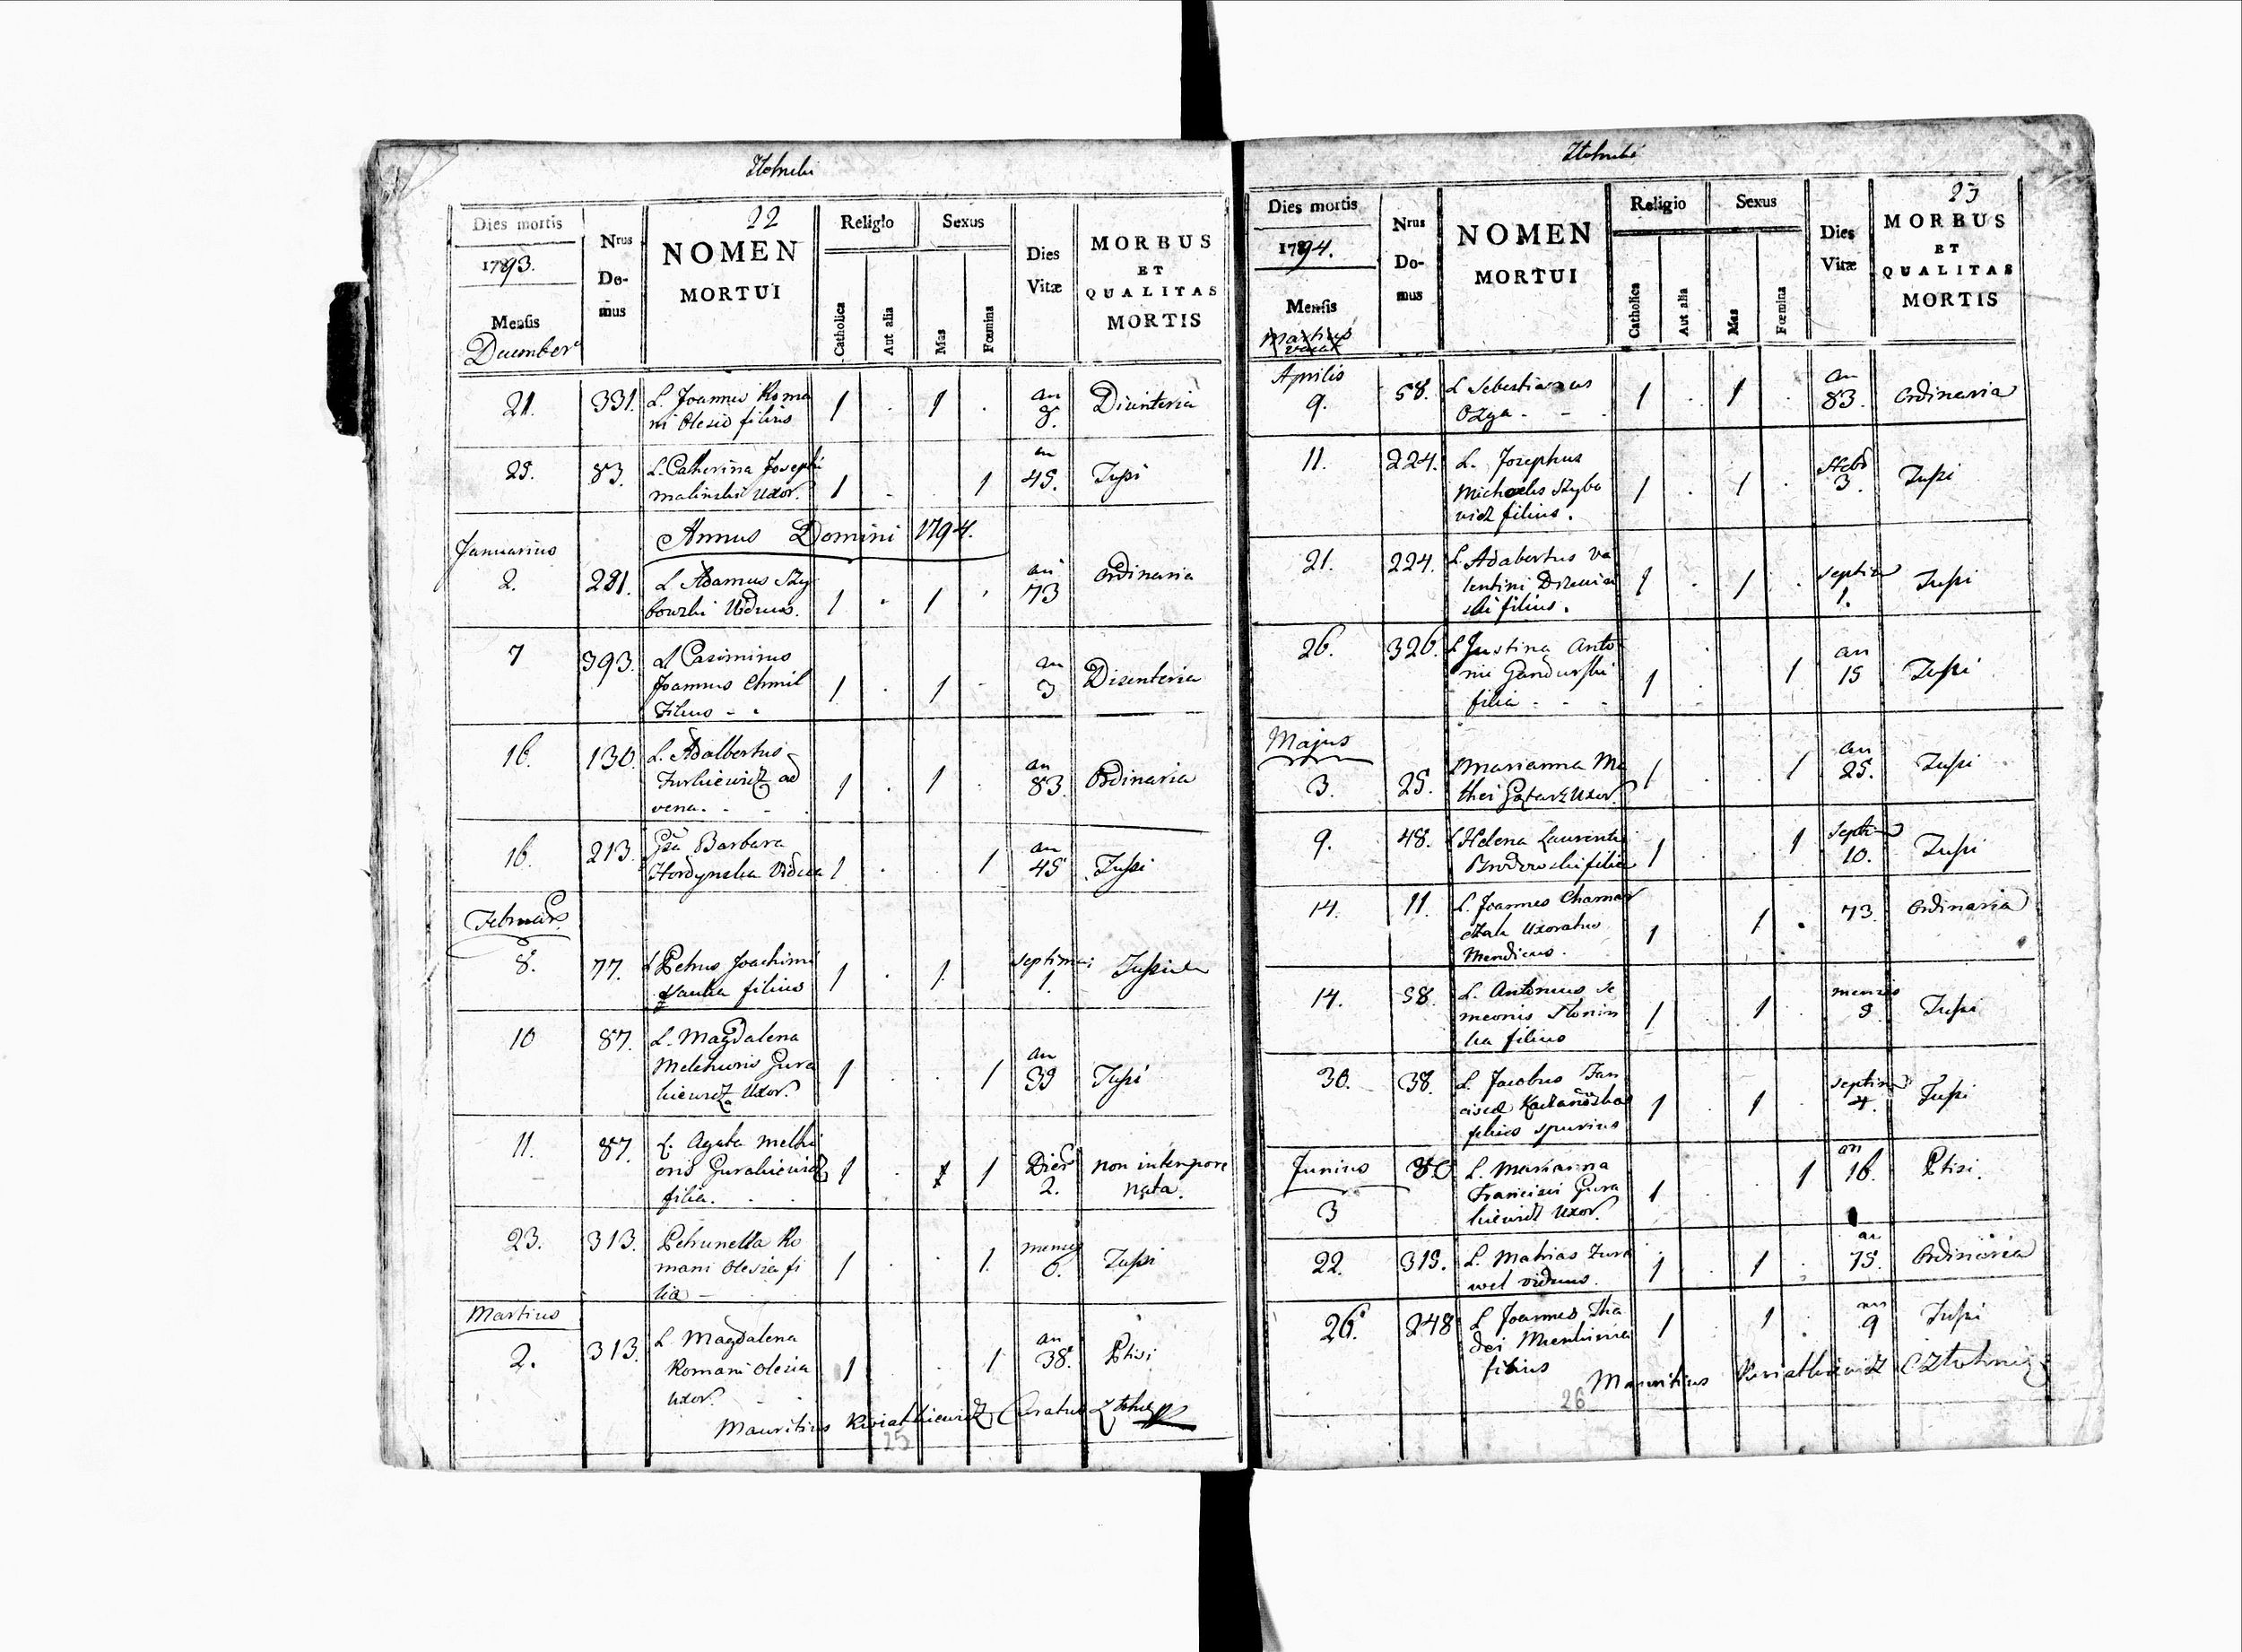 22
Dies mortis
1793.
Mensis
December
Nrus
Do-
mus
NOMEN
MORTUI
Religio
Catholica
Aut alia
Sexus
Mas
Fœmina
Dies
Vitæ
MORBUS
ET
QUALITAS
MORTIS
21. 331. L. Joannis Roma 1 . 1 . an Disinteria
ni Olesio filius 8.
25. 83. L. Catherina Josephi an
malinski Uxor. 1 . . 1 45. Tussi
Annus Domini 1794.
Januarius
2. 281. L Adamus Szy an ordinaria
bowski Viduus. 1 . 1 . 73
7 393. L Casimirus an
Joannis Chmil 1 . 1 . 3 Disenteria
Filius
16. 130. L. Adalbertus
Turkiewicz ad 1 . 1 . an 83. Ordinaria
vena.
16. 213. Gsa Barbara an
Hordynska Vidua 1 . . 1 45 Tussi
Februar
8. 77. L Petrus Joachimi 1 . 1. septimai
filius 1.
10 87. L. Magdalena
Melchioris Gura 1 . . 1 an 39 Tussi
kiewicz Uxor.
11. 87. L. Agata Melchi
oris Gurakiewicz 1 . 1 Dies non intempore
filia. 2. nata.
23. 313. Petrunella Ro menses
mani Olesia fi 1 . . 1. 6. Tussi
lia
Martius
2. 313. L Magdalena an
Romani Olesia 1 . 1 38. Ptisi
uxor.
Mauritius Kwiatkiewicz Curatus
25
23
Dies mortis
1794.
Mensis
Martius
vacat
Nrus
Do-
mus
NOMEN
MORTUI
Religio
Catholica
Aut alia
Sexus
Mas
Fœmina
Dies
Vitæ
MORBUS
ET
QUALITAS
MORTIS
Aprilis
9. 58. L Sebastianus 1 . 1 . an ordinaria
Ozga 83.
11. 224. L. Josephus
Michaelis Szybo 1 . 1 . 3. Tussi
vicz filius.
21. 224. L. Adabertus Va
lentini 1 . 1 . 1. Tussi
filius.
26. 326. L Justina Anto an
nii Gandurski 1 . 1 15 Tussi
filia
Majus
3. 25. Marianna Ma 1 . . 1 an Tussi
thei Uxor. 25.
9. 48. L Helena Laurenti 1 . . 1
filia 10. Tussi
14. 11. L. Joannes 73. Ordinaria
Uxoratus 1 1 .
Mendicus.
14. 58. L. Antonius Se menses
meonis 1 1 . 9 Tussi
filius
30. 38. L. Jacobus
1 . 1 . 4. Tussi
filius spurius
Junius 80 L. Marianna an
3 Francisci Gura 1 . . 1 16. Ptisi.
kiewicz Uxor.
22. 315. L. Mathias Zura an
wel viduus. 1 . 1 . 75. Ordinaria
26. 248 L Joannes Tha an
dei 1 1 . 9 Tussi
filius
Mauritius Kwiatkiewicz
26